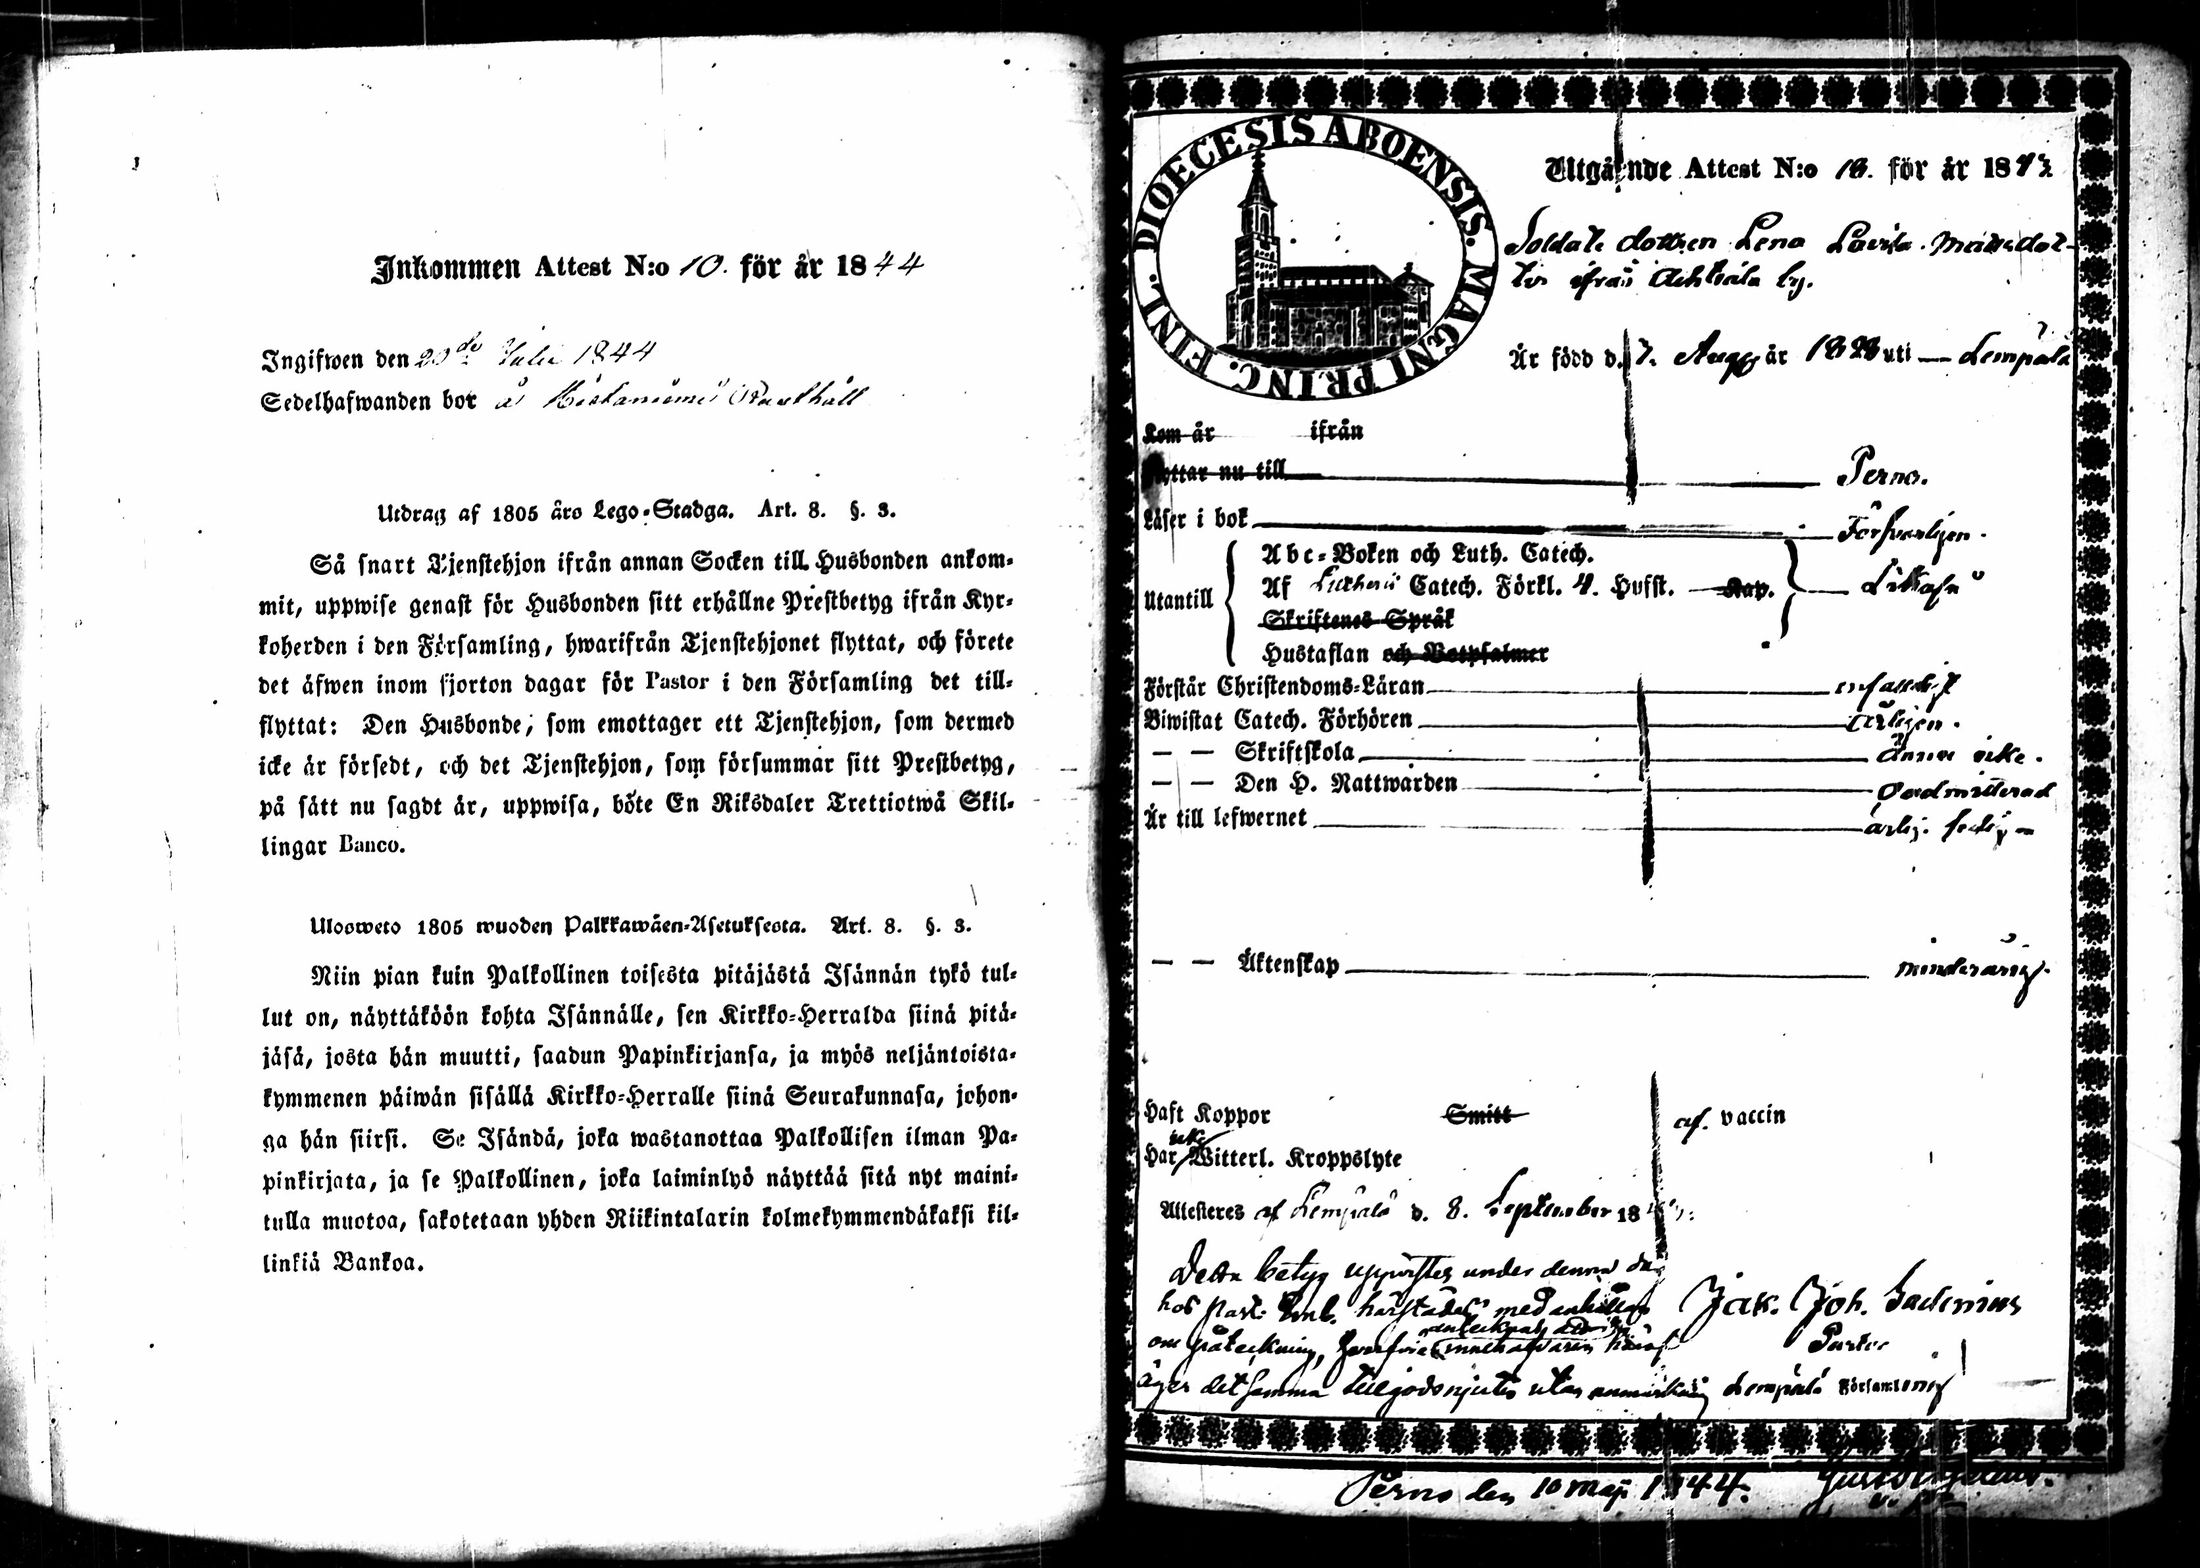 Inkommen Attest N:o 10. för år 1844
Ingifwen den 20de Julii 1844
Sedelhafwanden bor å Rusthåll
Utdrag af 1805 års Lego-Stadga. Art. 8. §. 3.
Så snart Tjenstehjon ifrån annan Socken till Husbonden ankom-
mit, uppwise genast för Husbonden sitt erhållne Prestbetyg ifrån Kyr-
koherden i den Församling, hwarifrån Tjenstehjonet flyttat, och förete
det äfwen inom fjorton dagar för Pastor i den Församling det till-
flyttat: Den Husbonde, som emottager ett Tjenstehjon, som dermed
icke är försedt, och det Tjenstehjon, som försummar sitt Prestbetyg,
på sätt nu sagdt är, uppwisa, böte En Riksdaler Trettiotwå Skil-
lingar Banco.
Ulosweto 1805 wuoden Palkkawäen-Asetuksesta. Art. 8. §. 3.
Niin pian kuin Palkollinen toisesta pitäjästä Isännän tykö tul-
lut on, näyttäköön kohta Isännälle, sen Kirkko-Herralda siinä pitä-
jäsä, josta hän muutti, saadun Papinkirjansa, ja myös neljäntoista-
kymmenen päiwän sisällä Kirkko-Herralle siinä Seurakunnasa, johon-
ga hän siirsi. Se Isändä, joka wastanottaa Palkollisen ilman Pa-
pinkirjata, ja se Palkollinen, joka laiminlyö näyttää sitä nyt maini-
tulla muotoa, sakotetaan yhden Riikintalarin kolmekymmendäkaksi kil-
linkiä Bankoa.
DIOECESIS ABOENSIS. MAGNI PRINC. FINL.
Utgående Attest N:o 18. för år 1843
Soldats dottren Lena Lovisa Matsdot-
ter ifrån by.
Är född d. 7. Aug. år 1828 uti Lempälä
Kom år ifrån
Flyttar nu till Perno.
Läser i bok Försvarligen.
Utantill
Abc-Boken och Luth. Catech.
Af Lutheri Catech. Förkl. 4. Hufst. Kap. Likaså
Skriftenes Språk
Hustaflan och Botpsalmer
Förstår Christendoms-Läran enfaldigt
Biwistat Catech. Förhören årligen.
— — Skriftskola ännu icke.
— — Den H. Nattwarden oadmitterad
Är till lefwernet ärlig.
— — Äktenskap minderårig.
Haft Koppor Smitt af vaccin
Har icke Witterl. Kroppslyte
Attesteres af Lempälä d. 8. September 18
Detta betyg uppvistes under denna dag
hos Past. härstädes med anhållan
om påteckning,
äger det samma tillgodonjuta utan anmärkning
Jak. Joh.
Pastor
Lempälä Församling
Perno den 10 Maji 1844.